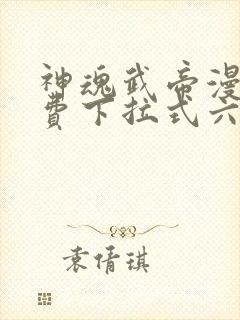 神魂武帝漫
费下拉式六
袁倩琪